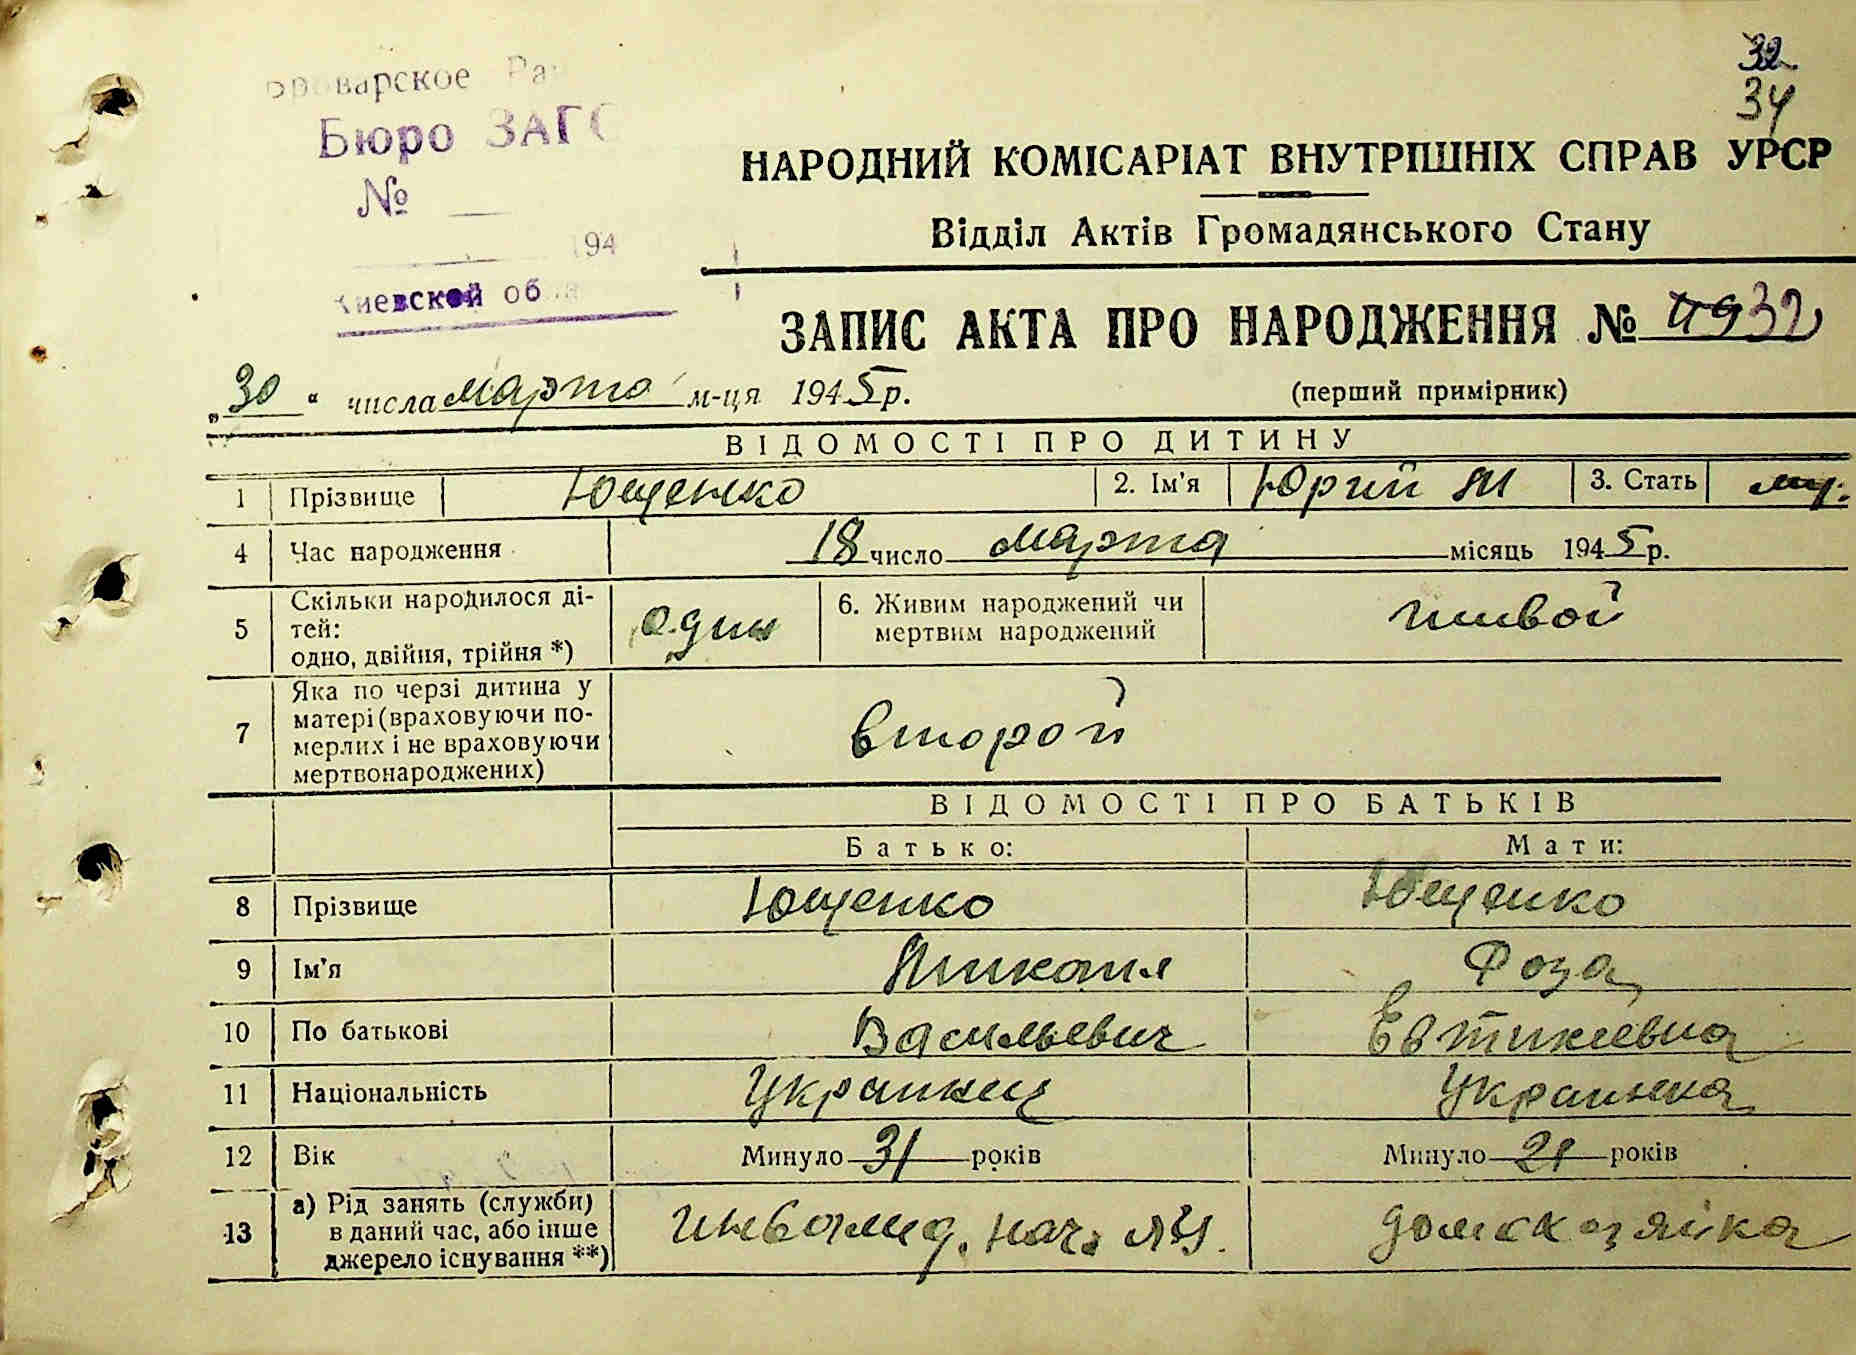 32
34
Броварское
Бюро ЗАГС
№
194
Киевской
НАРОДНИЙ КОМІСАРІАТ ВНУТРІШНІХ СПРАВ УРСР
Відділ Актів Громадянського Стану
ЗАПИС АКТА ПРО НАРОДЖЕННЯ № 32
„30“ числа марта м-ця 1945 р.
(перший примірник)
ВІДОМОСТІ ПРО ДИТИНУ
1 Прізвище Ющенко 2. Ім'я Юрий 3. Стать муж.
4 Час народження 18 число марта місяць 1945 р.
5 Скільки народилося ді-
тей:
одно, двійня, трійня *) один 6. Живим народжений чи
мертвим народжений живой
7 Яка по черзі дитина у
матері (враховуючи по-
мерлих і не враховуючи
мертвонароджених) второй
ВІДОМОСТІ ПРО БАТЬКІВ
Батько: Мати:
8 Прізвище Ющенко Ющенко
9 Ім'я Роза
10 По батькові Васильевич Евтихиевна
11 Національність Украинец Украинка
12 Вік Минуло 31 років Минуло 21 років
13 а) Рід занять (служби)
в даний час, або інше
джерело існування **) инвалид. нач. домохозяйка